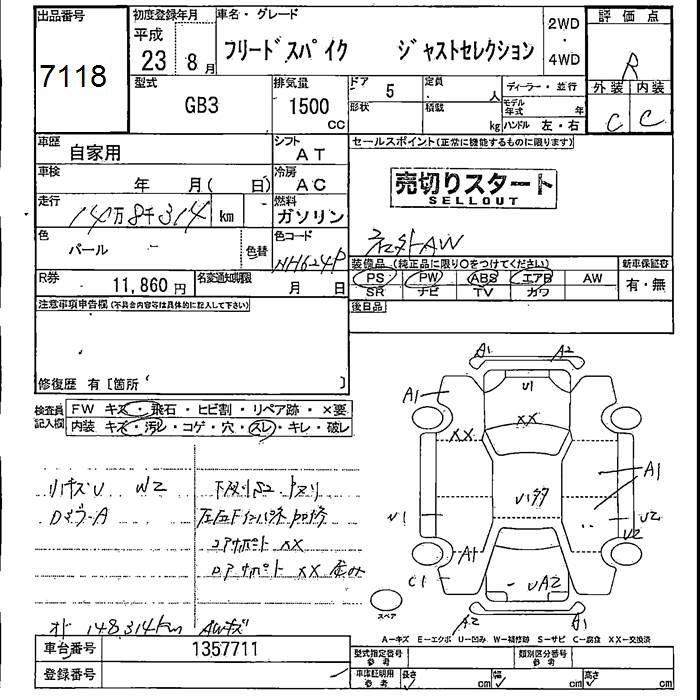 出品番号
7118
初度登録年月
平成
23 8月
車名・グレード
フリードスパイク ジャストセレクション
2WD
・
4WD
評価点
R
外装 内装
C C
型式
GB3
排気量
1500
CC
ドア 5
形状
定員 人
積載 kg
ディーラー・並行
モデル年式 年
ハンドル 左・右
車歴
自家用
シフト
AT
車検
年 月( 日)
冷房
AC
走行
14万8千314 km
燃料
ガソリン
色
パール
色替
色コード
NH624P
R券
11,860円
名変通知期限
月 日
セールスポイント(正常に機能するものに限ります)
売切りスタート
SELLOUT
ネット外AW
装備品(純正品に限り○をつけてください)
PS PW ABS エアB AW
SR ナビ TV カワ
新車保証書
有・無
後日品
注意事項申告欄(不具合内容等は具体的に記入して下さい)
修復歴 有〔箇所 〕
検査員記入欄
FW キズ・飛石・ヒビ割・リペア跡・×要
内装 キズ・汚レ・コゲ・穴・スレ・キレ・破レ
リキズU W2
DミラーA
コアサポート XX
オド 148,314km AWキズ
A1 A2
A1
U1
XX
XX
A1
U1
U2
U2
A1
C1
UA2
A2 A1
スペア
A-キズ E-エクボ U-凹み W-補修跡 S-サビ C-腐食 XX-交換済
車台番号
1357711
登録番号
型式指定番号
参考
類別区分番号
参考
車庫証明用
参考
長さ cm
幅 cm
高さ cm